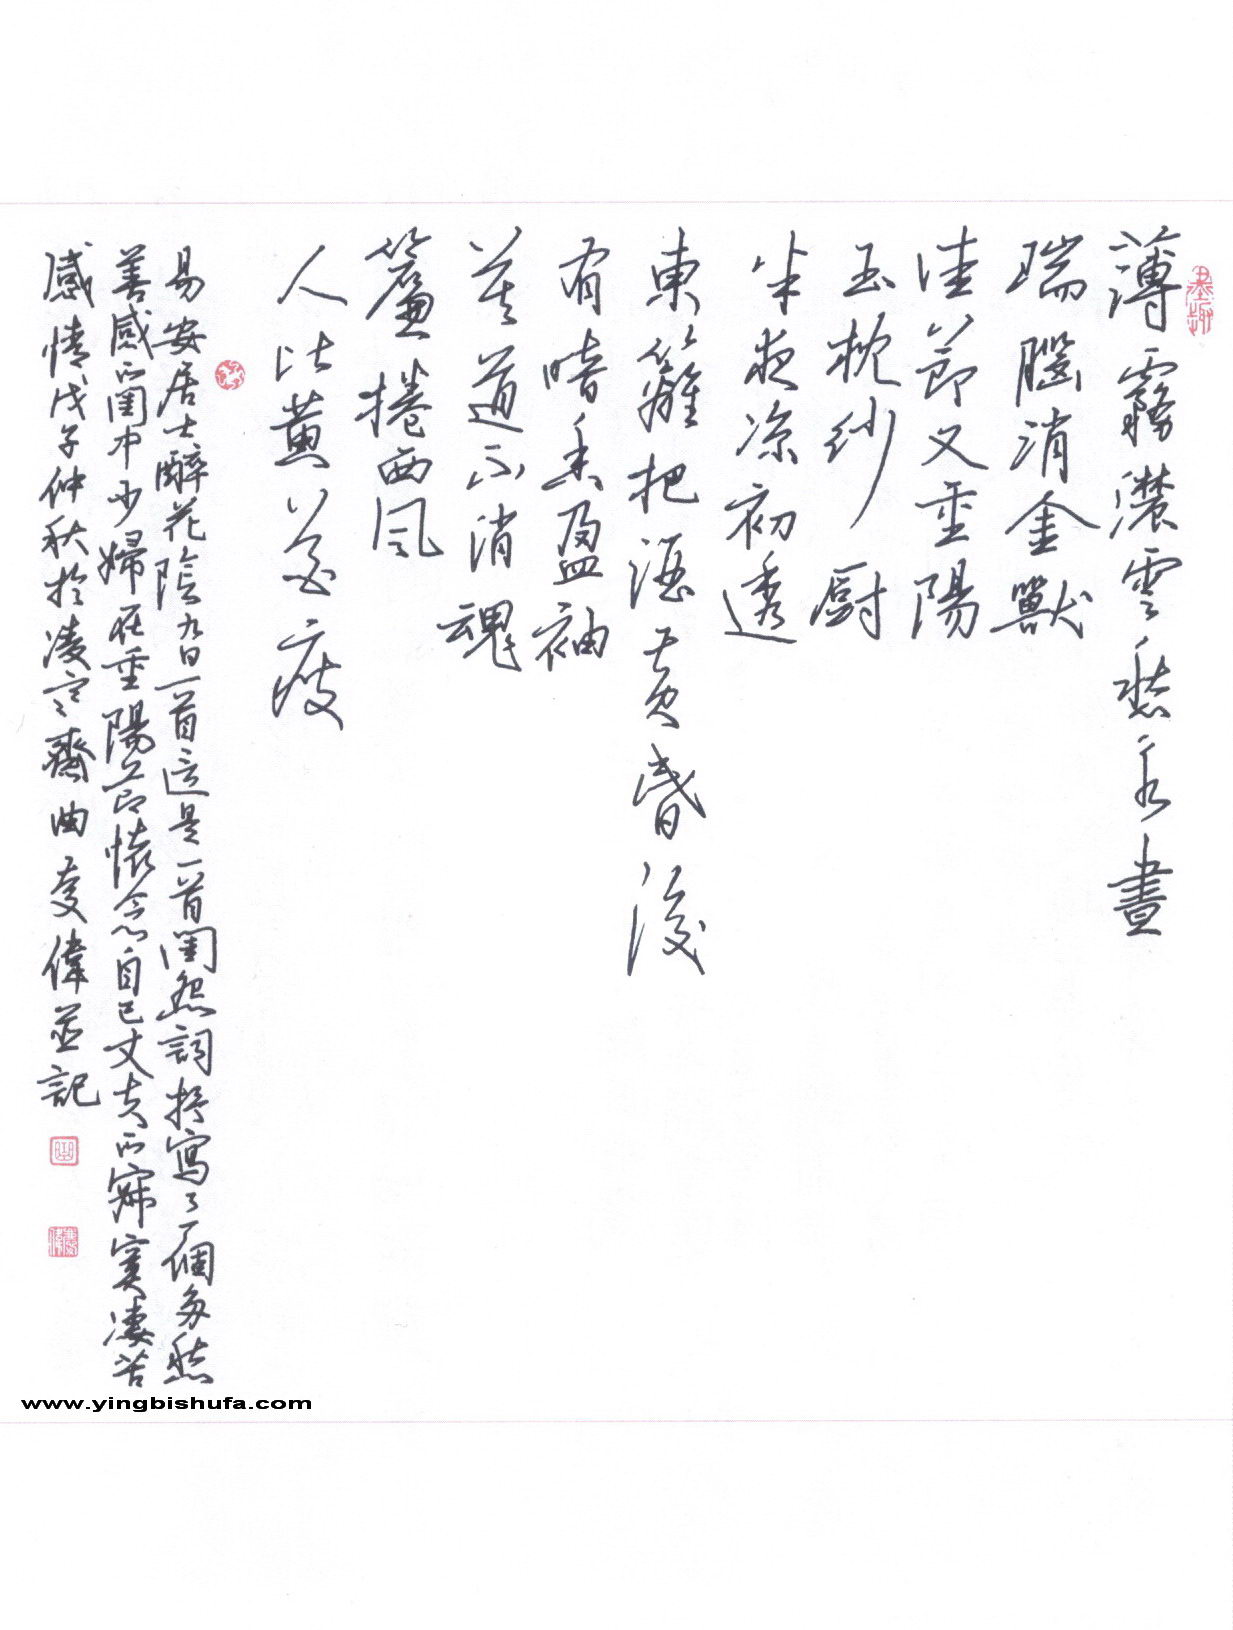 薄霧濃雲愁永晝
瑞腦消金獸
佳節又重陽
玉枕紗厨
半夜凉初透
東籬把酒黄昏後
有暗香盈袖
莫道不消魂
簾捲西風
人比黄花瘦
易安居士醉花陰九日一首這是一首閨怨詞抒寫了一個多愁
善感的閨中少婦在重陽節懷念自己丈夫的寂寞凄苦
感情戊子仲秋於凌寒齋曲慶偉並記
www.yingbishufa.com